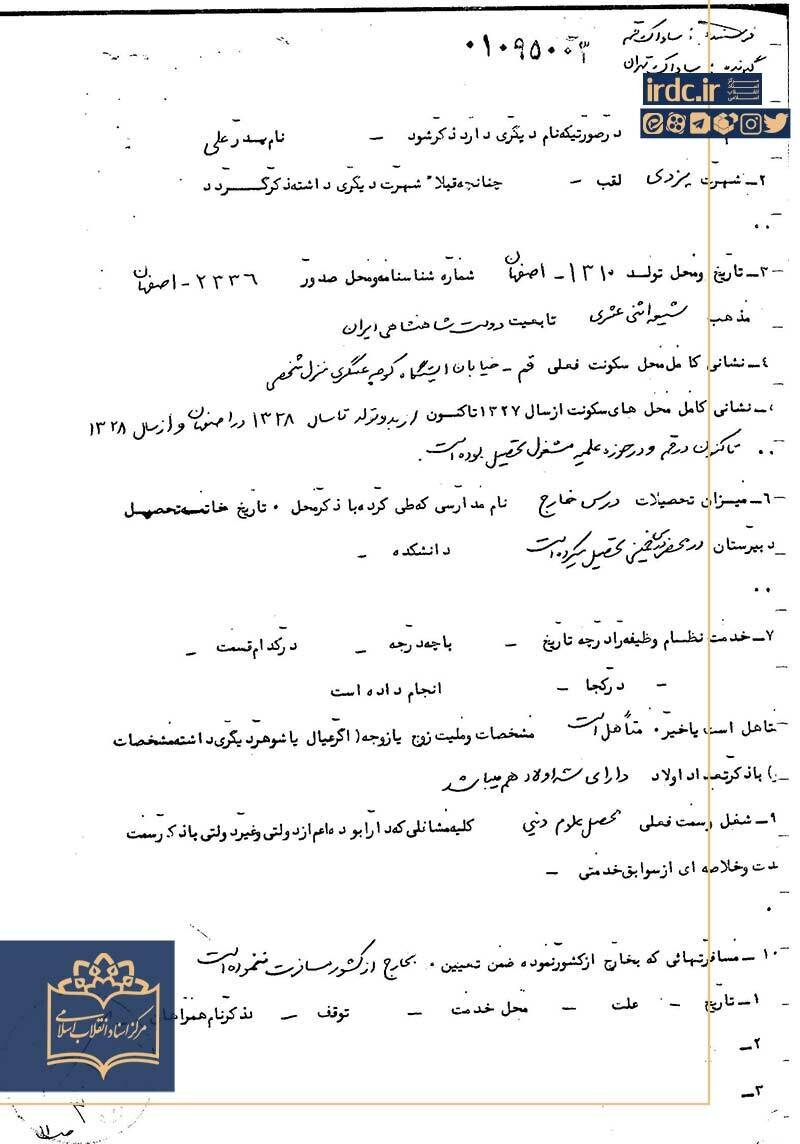 فرستنده : ساواک قم
گیرنده : ساواک تهران
۰۱۰۹۵۰۰۳
irdc.ir
مرکز اسناد انقلاب اسلامی
درصورتیکه نام دیگری دارد ذکر شود – نام پدر علی
۲ــ شهرت یزدی لقب – چنانچه قبلا" شهرت دیگری داشته ذکر گردد
۳ــ تاریخ ومحل تولد ۱۳۱۰ - اصفهان شماره شناسنامه ومحل صدور ۲۳۳۶ - اصفهان
مذهب شیعه اثنی عشری تابعیت دولت شاهنشاهی ایران
٤ــ نشانی کامل محل سکونت فعلی قم - خیابان ایستگاه کوچه عسگری منزل شخصی
نشانی کامل محل های سکونت ازسال ۱۳۲۷ تاکنون از بدو تولد تا سال ۱۳۲۸ در اصفهان و از سال ۱۳۲۸
تاکنون در قم و در حوزه علمیه مشغول تحصیل بوده است.
٦ــ میزان تحصیلات درس خارج نام مدارسی که طی کرده با ذکر محل ۰ تاریخ خاتمه تحصیل
دبیرستان در محضر درس خمینی تحصیل میکرده است دانشکده –
۷ــ خدمت نظام وظیفه رادرچه تاریخ – باچه درجه – درکدام قسمت –
– درکجا – انجام داده است
متاهل است یاخیر۰ متأهل است مشخصات وملیت زوج یازوجه( اگرعیال یاشوهردیگری داشته مشخصات
) باذکرتعداد اولاد دارای سه اولاد هم میباشد
۹ــ شغل وسمت فعلی محصل علوم دینی کلیه مشاغلی که دارا بوده اعم ازدولتی وغیردولتی باذکرسمت
مدت وخلاصه ای ازسوابق خدمتی –
۱۰ــ مسافرتهائی که بخارج ازکشورنموده ضمن تعیین ۰ بخارج از کشور مسافرت ننموده است
۱ــ تاریخ – علت – محل خدمت – توقف – بذکرنام همراهان
۲ــ
۳ــ
مرکز اسناد انقلاب اسلامی